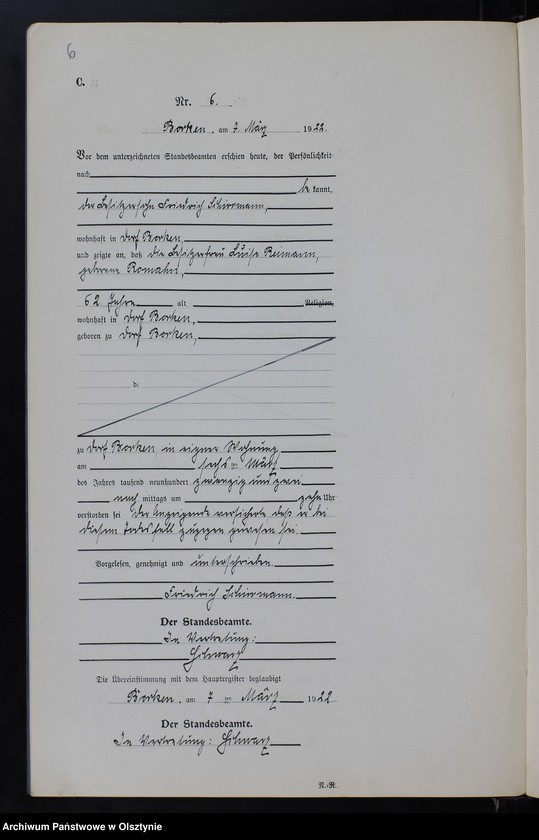 6
C.
Nr. 6.
Borken, am 7. März 1922.
Vor dem unterzeichneten Standesbeamten erschien heute, der Persönlichkeit
nach
be kannt,
der Besitzersohn Friedrich Schirrmann,
wohnhaft in Dorf Borken,
und zeigte an, daß die Besitzerfrau Luise Reimann,
geborene Romahn,
62 Jahre alt, Religion,
wohnhaft in Dorf Borken,
geboren zu Dorf Borken,
de
zu Dorf Borken, in eigner Wohnung
am sechsten März
des Jahres tausend neunhundert zwanzig und zwei
nach mittags um zehn Uhr
verstorben sei. Der Anzeigende versicherte daß er bei
diesem Todesfall zugegen gewesen sei.
Vorgelesen, genehmigt und unterschrieben
Friedrich Schirrmann.
Der Standesbeamte.
In Vertretung:
Die Übereinstimmung mit dem Hauptregister beglaubigt
Borken, am 7 ten März 1922
Der Standesbeamte.
In Vertretung:
N.-R.
Archiwum Państwowe w Olsztynie